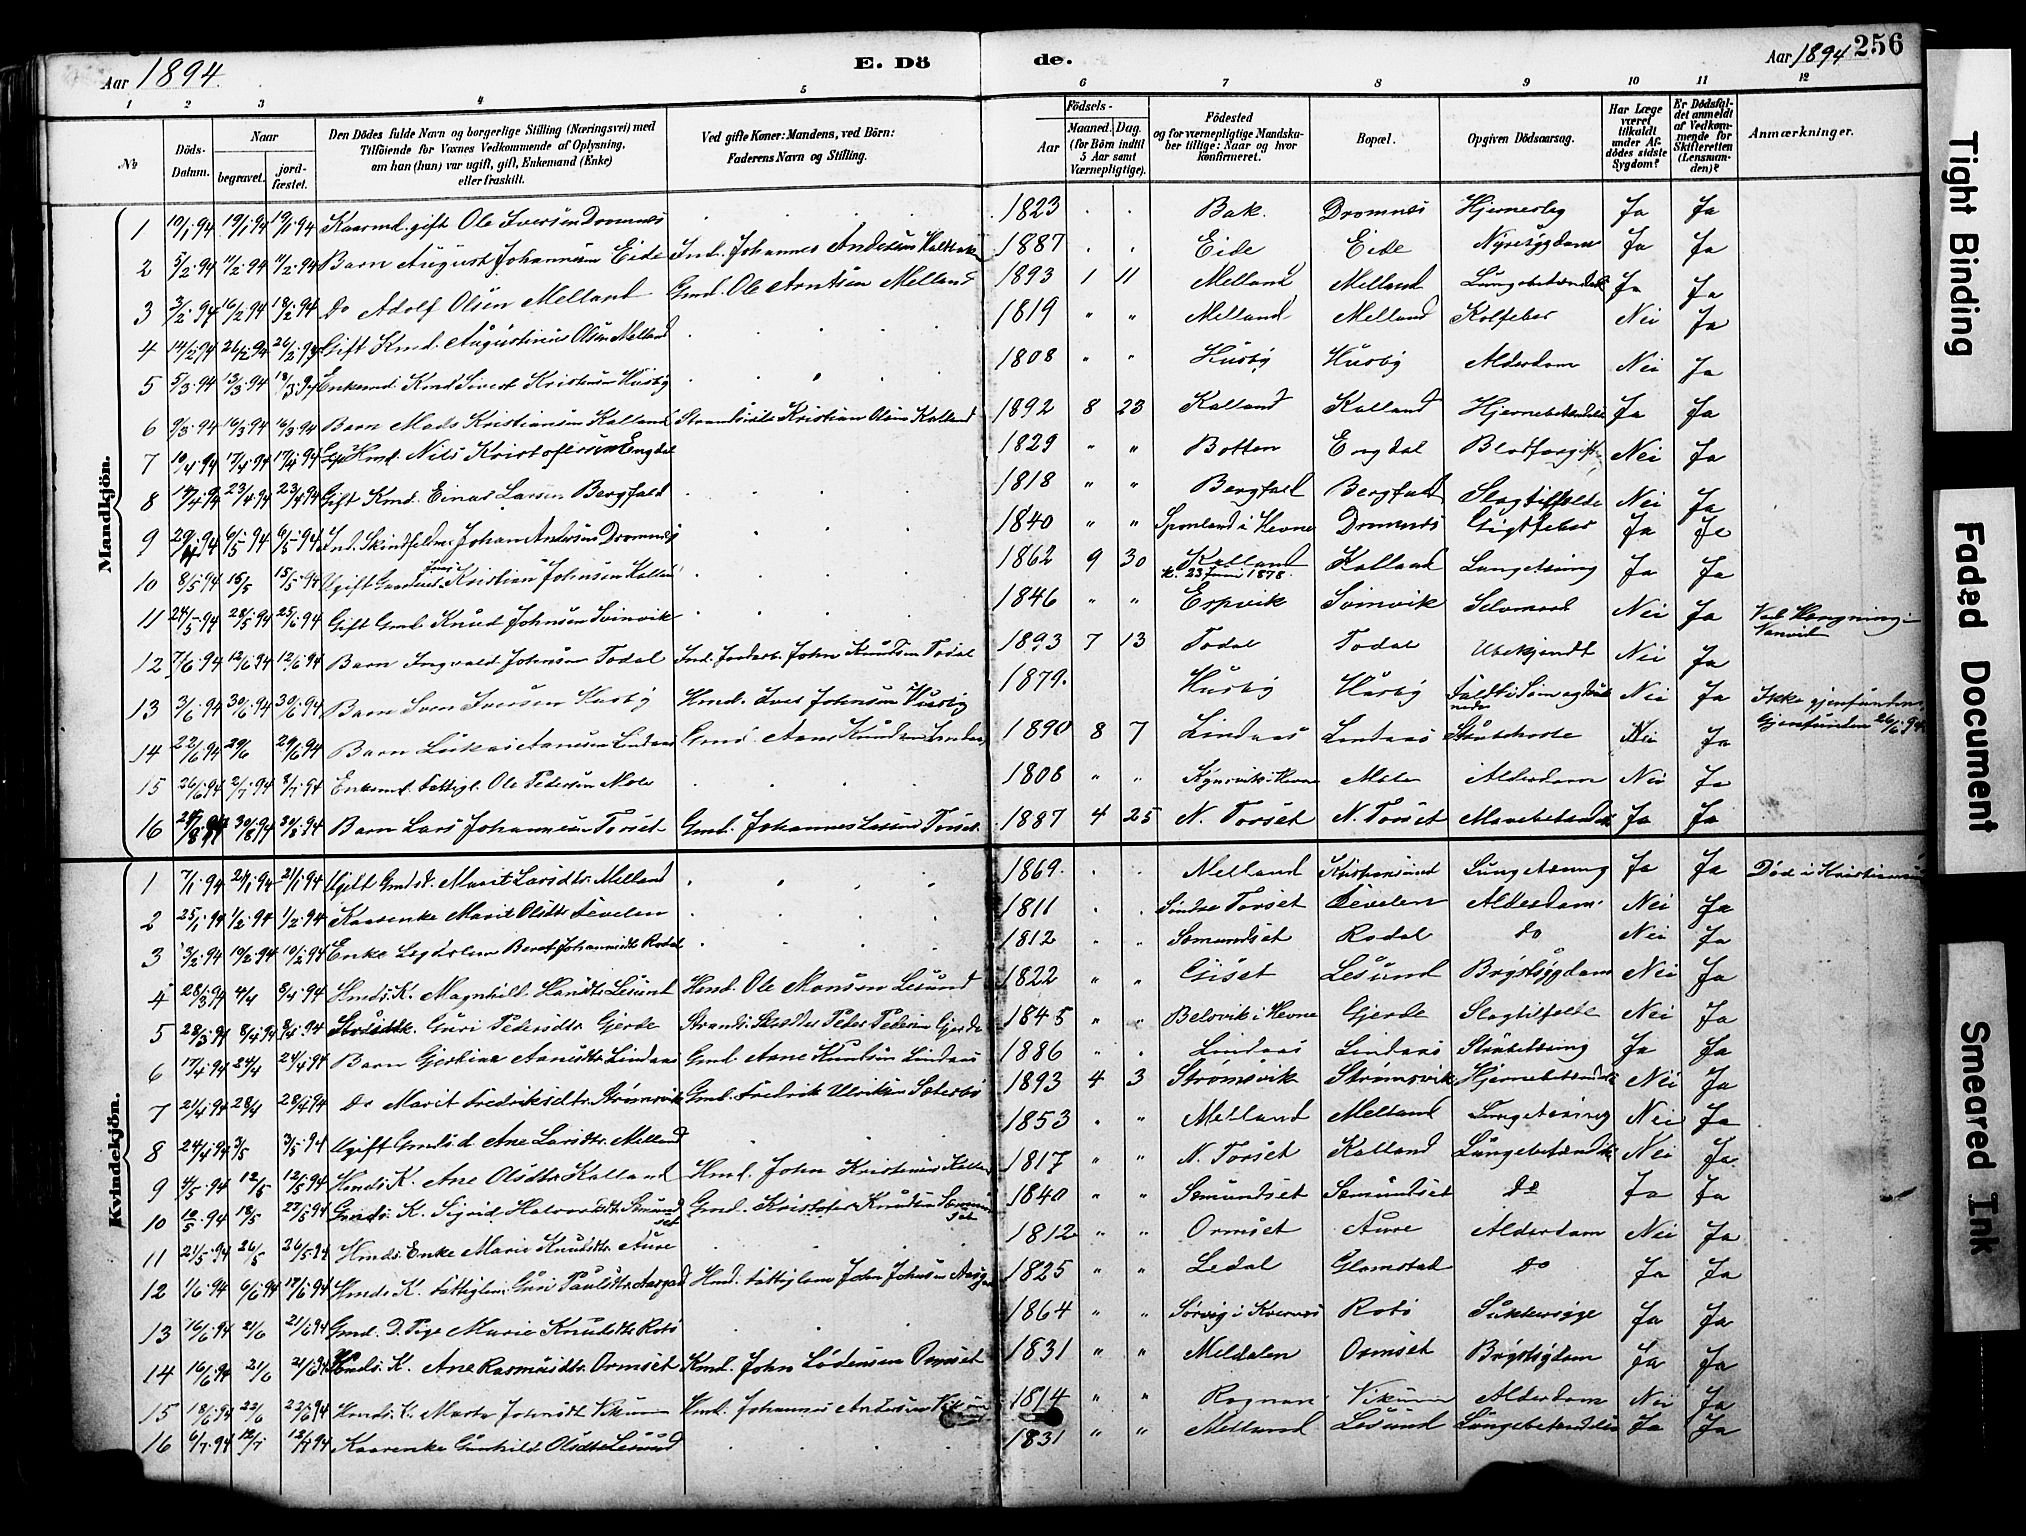 Aar 1894. E. Döde. Aar 1894 256
1 2 3 4 5 6 7 8 9 10 11 12
№
Döds-Datum.
Naar
begravet.
jordfæstet.
Den Dödes fulde Navn og borgerlige Stilling (Næringsvei) med
Tilföiende for Voxnes Vedkommende af Oplysning,
om han (hun) var ugift, gift, Enkemand (Enke)
eller fraskilt.
Ved gifte Koner: Mandens, ved Börn:
Faderens Navn og Stilling.
Födsels-
Aar
Maaned. Dag.
(for Börn indtil
5 Aar samt
Værnepligtige).
Födested
og for værnepligtige Mandskaber tillige: Naar og hvor
konfirmeret.
Bopæl.
Opgiven Dödsaarsag.
Har Læge været tilkaldt under Afdödes sidste Sygdom?
Er Dödsfaldet anmeldt af Vedkommende for Skifteretten (Lensmanden)?
Anmærkninger.
Mandkjön.
1 10/1 94 19/1 94 19/1 94 Kaarmd. gift Ole Iversen Dromnes 1823 Bak. Dromnes Ja Ja
2 5/2 94 11/2 94 11/2 94 Barn August Johannesen Eide Ind. Johannes Andersen 1887 Eide Eide Nyresygdom Ja Ja
3 3/2 94 16/2 94 18/2 94 Do Adolf Olsen Melland Gmd. Ole Arntsen Melland 1893 1 11 Melland Melland Lungebetændelse Ja Ja
4 14/2 94 26/2 94 26/2 94 Gift Kmd. Augustinus Olsen Melland 1819 " " Melland Melland Kolfeber Nei Ja
5 5/3 94 13/3 94 18/3 94 Enkemd. Kmd Sivert Kristensen Husby 1808 " " Husby Husby Alderdom Nei Ja
6 9/3 94 16/3 94 16/3 94 Barn Mads Kristiansen Kalland Strandsidd. Kristian Olsen Kalland 1892 8 23 Kalland Kalland Hjernebetændelse Ja Ja
7 10/4 94 17/4 94 17/4 94 Hmd. Nils Kristofersen Engdal 1829 " " Botten Engdal Blodforgift. Nei Ja
8 14/4 94 23/4 94 23/4 94 Gift Kmd. Einar Larsen Bergfald 1818 " " Bergfald Bergfald Slagtilfælde Nei Ja
9 29/4 94 6/5 94 6/5 94 Ind. Skindfeldm. Johan Andersen Dromnes 1840 " " i Hevne Dromnes Gigtfeber Ja Ja
10 8/5 94 15/5 15/5 94 Ugift Kristian Johnsen Kalland 1862 9 30 Kalland k. 23 Juni 1878. Kalland Lungetæring Ja Ja
11 24/5 94 28/5 94 25/6 94 Gift Gmd. Knud Johnsen Svinvik 1846 " " Espvik Svinvik Selvmord Nei Ja Ved Hængning i Vanvid
12 7/6 94 12/6 94 12/6 94 Barn Ingvald Johnsen Todal Ind. Jordarb. John Knudsen Todal 1893 7 13 Todal Todal Ubekjendt Nei Ja
13 3/6 94 30/6 94 30/6 94 Barn Sven Iversen Husby Hmd. Iver Johnsen Husby 1879. Husby Husby Faldt i Søen og Nei Ja Ikke gjenfunden. Gjenfunden 26/6 94
14 22/6 94 29/6 29/6 94 Barn Lukas Aanesen Lindaas Gmd. Aane Knudsen Lindaas 1890 8 7 Lindaas Lindaas Strubehoste Nei Ja
15 26/6 94 2/7 94 8/7 94 Enkemd. fattigl. Ole Pedersen Mele 1808 " " i Hevne Mele Alderdom Nei Ja
16 94 30/8 94 30/8 94 Barn Lars Johannesen Torset Gmd. Johannes Larsen Torset 1887 4 25 N. Torset N. Torset Mavebetændelse Ja Ja
Kvindekjön.
1 7/1 94 21/1 94 21/1 94 Ugift Gmds d. Marit Larsdtr. Melland 1869. Melland Kristiansund Lungetæring Ja Ja Død i Kristiansund
2 25/1 94 1/2 94 1/2 94 Kaarenke Marit Olsdtr. Tevelen 1811 Søndre Torset Tevelen Alderdom. Nei Ja
3 3/2 94 10/2 94 10/2 94 Enke Legdslem Beret Johannesdtr. Rodal 1812 " Semundset Rodal Do Nei Ja
4 28/3 94 4/4 8/4 94 Hmds. K. Magnhild Hansdtr. Lesund Hmd. Ole Monsen Lesund 1822 " " Giset Lesund Brystsygdom Nei Ja
5 28/3 94 8/4 94 8/4 94 Guri Pedersdtr. Gjerde Strands. Skrædder Peder Pedersen Gjerde 1845 " " Belsvik i Hevne Gjerde Slagtilfælde Nei Ja
6 17/4 94 24/4 24/4 94 Barn Gjertine Aanesdtr. Lindaas Gmd. Aane Knudsen Lindaas 1886 " " Lindaas Lindaas Strubetæring Ja Ja
7 21/4 94 28/4 28/4 94 Do Marit Fredriksdtr. Strømsvik Gmd. Fredrik Ulriksen Sæterbø 1893 4 3 Strømsvik Strømsvik Hjernebetænd. Nei Ja
8 24/4 94 3/5 3/5 94 Ugift Gmds d. Ane Larsdtr. Melland 1853 " " Melland Melland Lungetæring Nei Ja
9 4/5 94 12/5 12/5 94 Hmds K. Ane Olsdtr. Kalland Hmd. John Kristensen Kalland 1817 " " N. Torset Kalland Lungebetændelse Nei Ja
10 10/5 94 18/5 22/5 94 Gmds. K. Sigrid Halvorsdtr. Semundset Gmd. Kristofer Knudsen Semundset 1840 " " Semundset Semundset Do Ja Ja
11 21/5 94 26/5 26/5 94 Hmds. Enke Marie Knudsdtr. Aure 1812 " " Ormset Aure Alderdom Nei Ja
12 1/6 94 6/6 94 17/6 94 Hmds K. fattiglem Guri Paulsdtr. Aasgad Hmd. fattiglem John Johnsen 1825 " " Ledal Glamstad Do Ja Ja
13 16/6 94 21/6 21/6 94 Gmd. D. Pige Marie Knudsdtr. Rotø 1864 " " Sørvig i Kvernes Rotø Sukkersyge Ja Ja
14 16/6 94 21/6 21/6 94 Kmds. K. Ane Rasmusdtr. Ormset Kmd. John Lodensen Ormset 1831 " " Meldalen Ormset Brystsygdom Ja Ja
15 18/6 94 22/6 22/6 94 Hmds. K. Johnsdtr. Vikum Hmd. Johannes Andersen Vikum 1814 " " Rognan Vikum Alderdom Nei Ja
16 6/7 94 12/7 12/7 94 Kaarenke Gunhild Olsdtr. Lesund 1831 " " Melland Lesund Lungebetændelse Ja Ja
Tight Binding
Faded Document
Smeared Ink